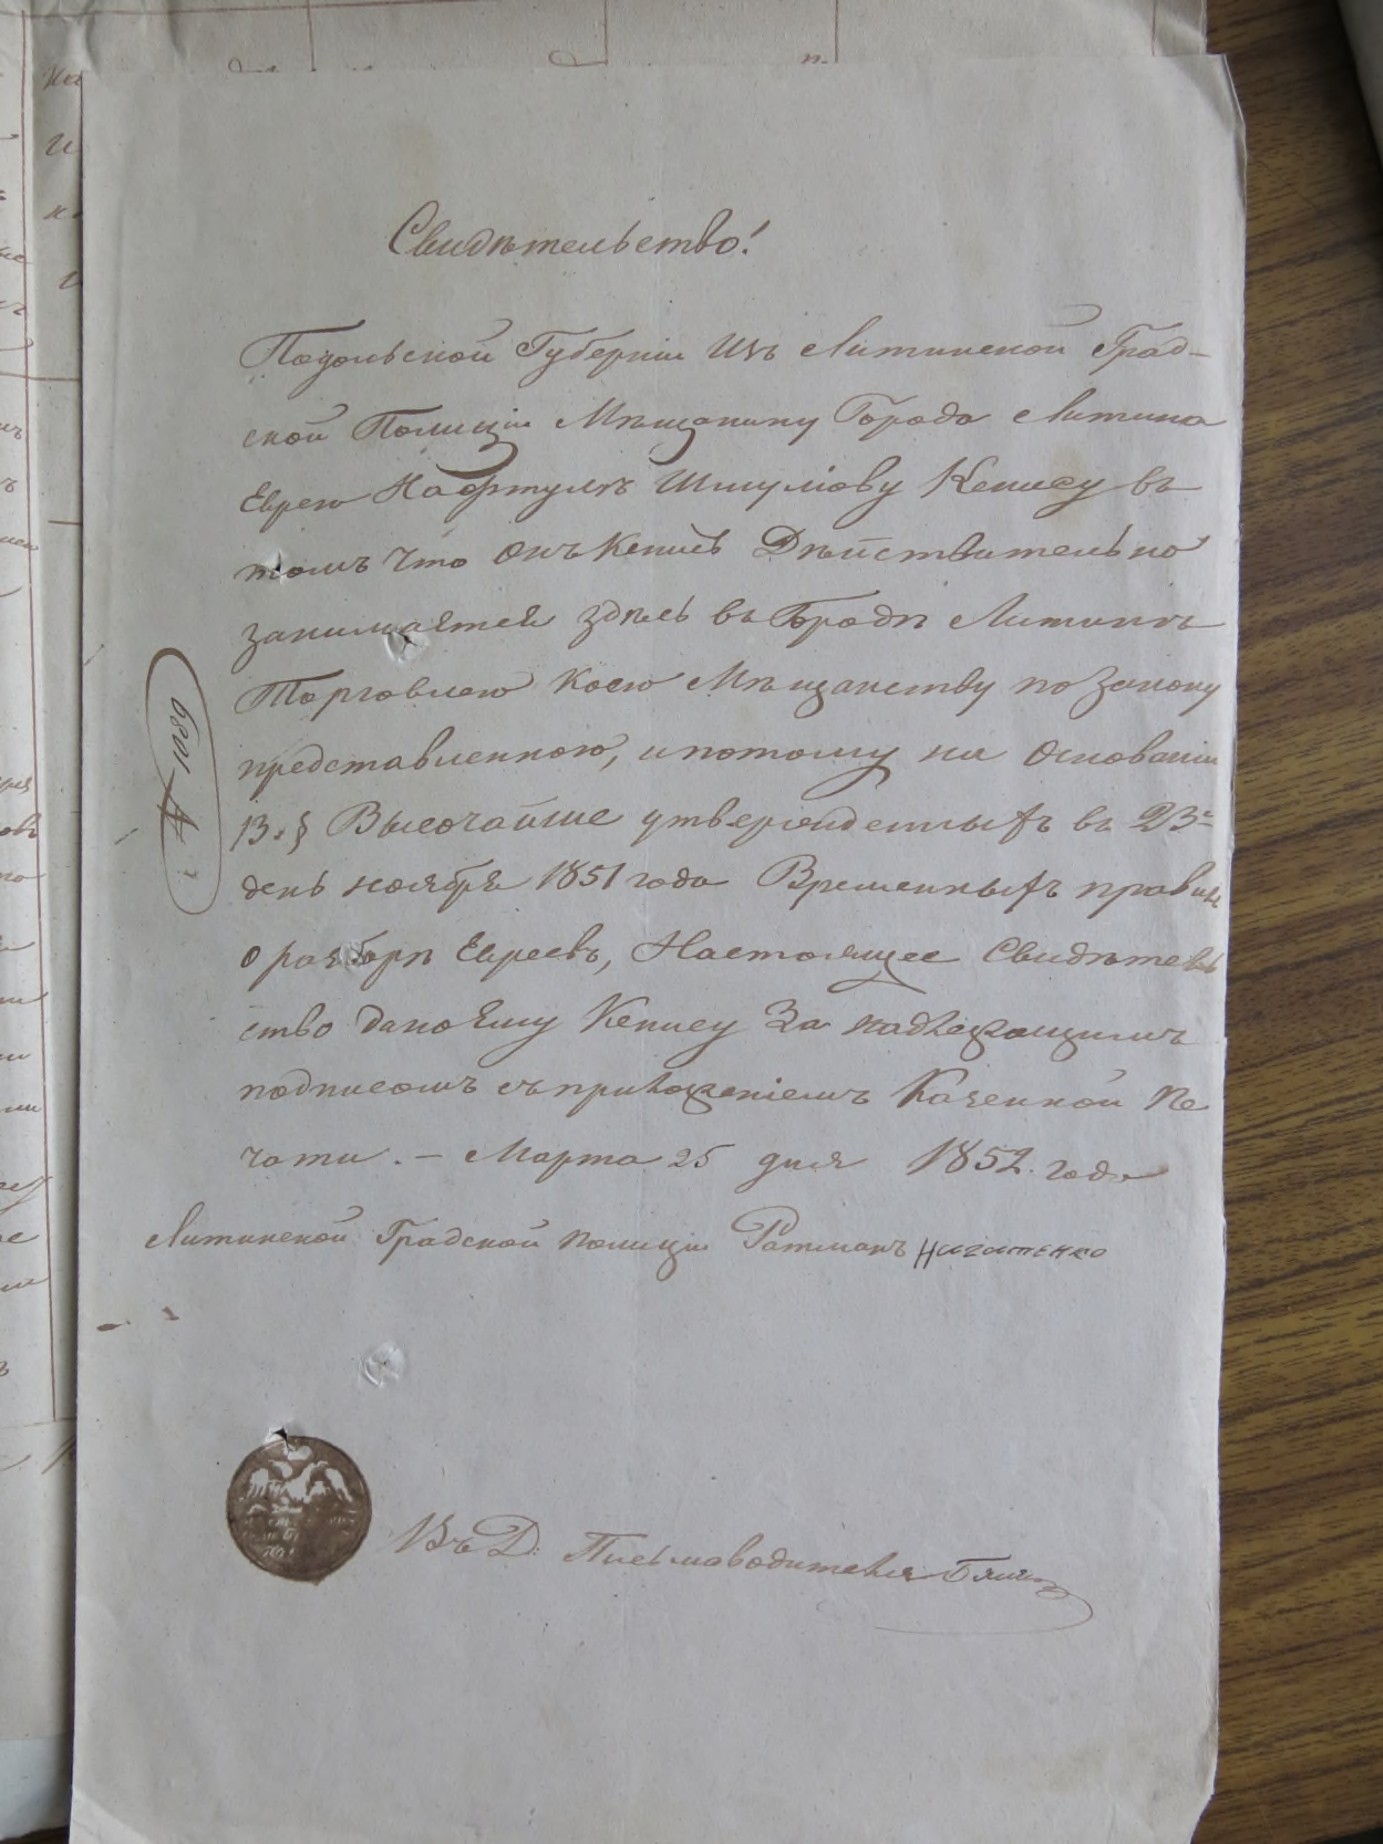 Свидѣтельство!
Подольской Губерніи Изъ Литинской Град-
ской Полиціи Мѣщанину Города Литина
Еврею Нафтулѣ Шмулiову Кепису въ
томъ что Онъ Кеписъ Дѣйствительно
занимается здѣсь въ Городѣ Литинѣ
Торговлею коею Мѣщанству по Закону
представленною, и потому на Основаніи
13. § Высочайше утвержденныхъ въ 23й
день ноября 1851 года Временныхъ правилъ
о разборѣ Евреевъ, Настоящее Свидѣтель
ство дано Ему Кепису За надлежащимъ
подписомъ съ приложеніемъ Казенной Пе
чати. – Марта 25 дня 1852. года
№ 1089
Литинской Градской Полиціи Ратманъ
Въ Д: Письмаводителя